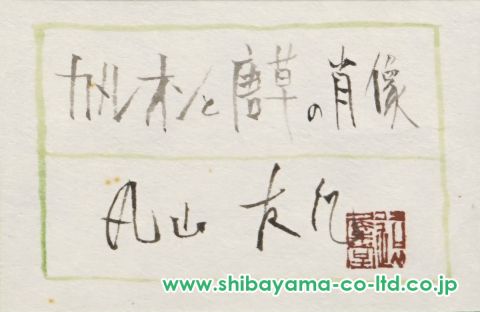 カルオンと唐草の肖像
丸山友几
www.shibayama-co-ltd.co.jp